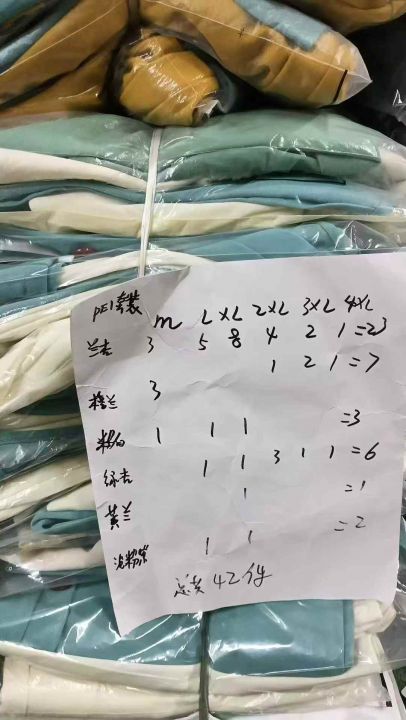 PE1套装 m L XL 2XL 3XL 4XL
兰杏 3 5 8 4 2 1=23
1 2 1=7
橙兰 3
粉白 1 1 1 =3
绿杏 1 1 3 1 1 =6
黄兰 1 =1
=2
1 1
总共42件